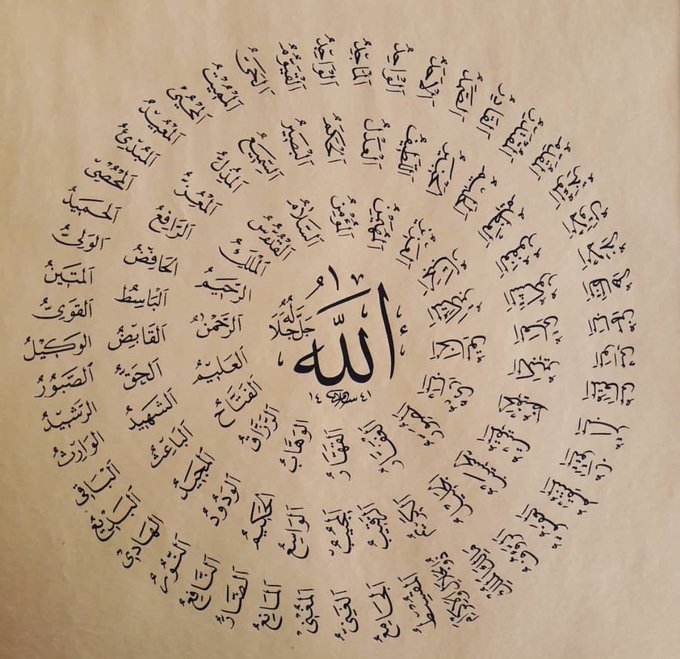 اَللّٰهُ
جَلَّ جَلَالُهُ
١٤٤١
اَلرَّحْمٰنُ
اَلرَّحِيمُ
اَلْمَلِكُ
اَلْقُدُّوسُ
اَلسَّلَامُ
اَلْمُؤْمِنُ
اَلْمُهَيْمِنُ
اَلْعَزِيزُ
اَلْجَبَّارُ
اَلْمُتَكَبِّرُ
اَلْخَالِقُ
اَلْبَارِئُ
اَلْمُصَوِّرُ
اَلْغَفَّارُ
اَلْقَهَّارُ
اَلْوَهَّابُ
اَلرَّزَّاقُ
اَلْفَتَّاحُ
اَلْعَلِيمُ
اَلْقَابِضُ
اَلْبَاسِطُ
اَلْخَافِضُ
اَلرَّافِعُ
اَلْمُعِزُّ
اَلْمُذِلُّ
اَلسَّمِيعُ
اَلْبَصِيرُ
اَلْحَكَمُ
اَلْعَدْلُ
اَللَّطِيفُ
اَلْخَبِيرُ
اَلْحَلِيمُ
اَلْعَظِيمُ
اَلْغَفُورُ
اَلشَّكُورُ
اَلْعَلِيُّ
اَلْكَبِيرُ
اَلْحَفِيظُ
اَلْمُقِيتُ
اَلْحَسِيبُ
اَلْجَلِيلُ
اَلْكَرِيمُ
اَلرَّقِيبُ
اَلْمُجِيبُ
اَلْوَاسِعُ
اَلْحَكِيمُ
اَلْوَدُودُ
اَلْمَجِيدُ
اَلْبَاعِثُ
اَلشَّهِيدُ
اَلْحَقُّ
اَلْوَكِيلُ
اَلْقَوِيُّ
اَلْمَتِينُ
اَلْوَلِيُّ
اَلْحَمِيدُ
اَلْمُحْصِي
اَلْمُبْدِئُ
اَلْمُعِيدُ
اَلْمُحْيِي
اَلْمُمِيتُ
اَلْحَيُّ
اَلْقَيُّومُ
اَلْوَاجِدُ
اَلْمَاجِدُ
اَلْوَاحِدُ
اَلْأَحَدُ
اَلصَّمَدُ
اَلْقَادِرُ
اَلْمُقْتَدِرُ
اَلْمُقَدِّمُ
اَلْمُؤَخِّرُ
اَلْأَوَّلُ
اَلْآخِرُ
اَلظَّاهِرُ
اَلْبَاطِنُ
اَلْوَالِي
اَلْمُتَعَالِي
اَلْبَرُّ
اَلتَّوَّابُ
اَلْمُنْتَقِمُ
اَلْعَفُوُّ
اَلرَّؤُوفُ
مَالِكُ الْمُلْكِ
ذُو الْجَلَالِ وَالْإِكْرَامِ
اَلْمُقْسِطُ
اَلْجَامِعُ
اَلْغَنِيُّ
اَلْمُغْنِي
اَلْمَانِعُ
اَلضَّارُّ
اَلنَّافِعُ
اَلنُّورُ
اَلْهَادِي
اَلْبَدِيعُ
اَلْبَاقِي
اَلْوَارِثُ
اَلرَّشِيدُ
اَلصَّبُورُ